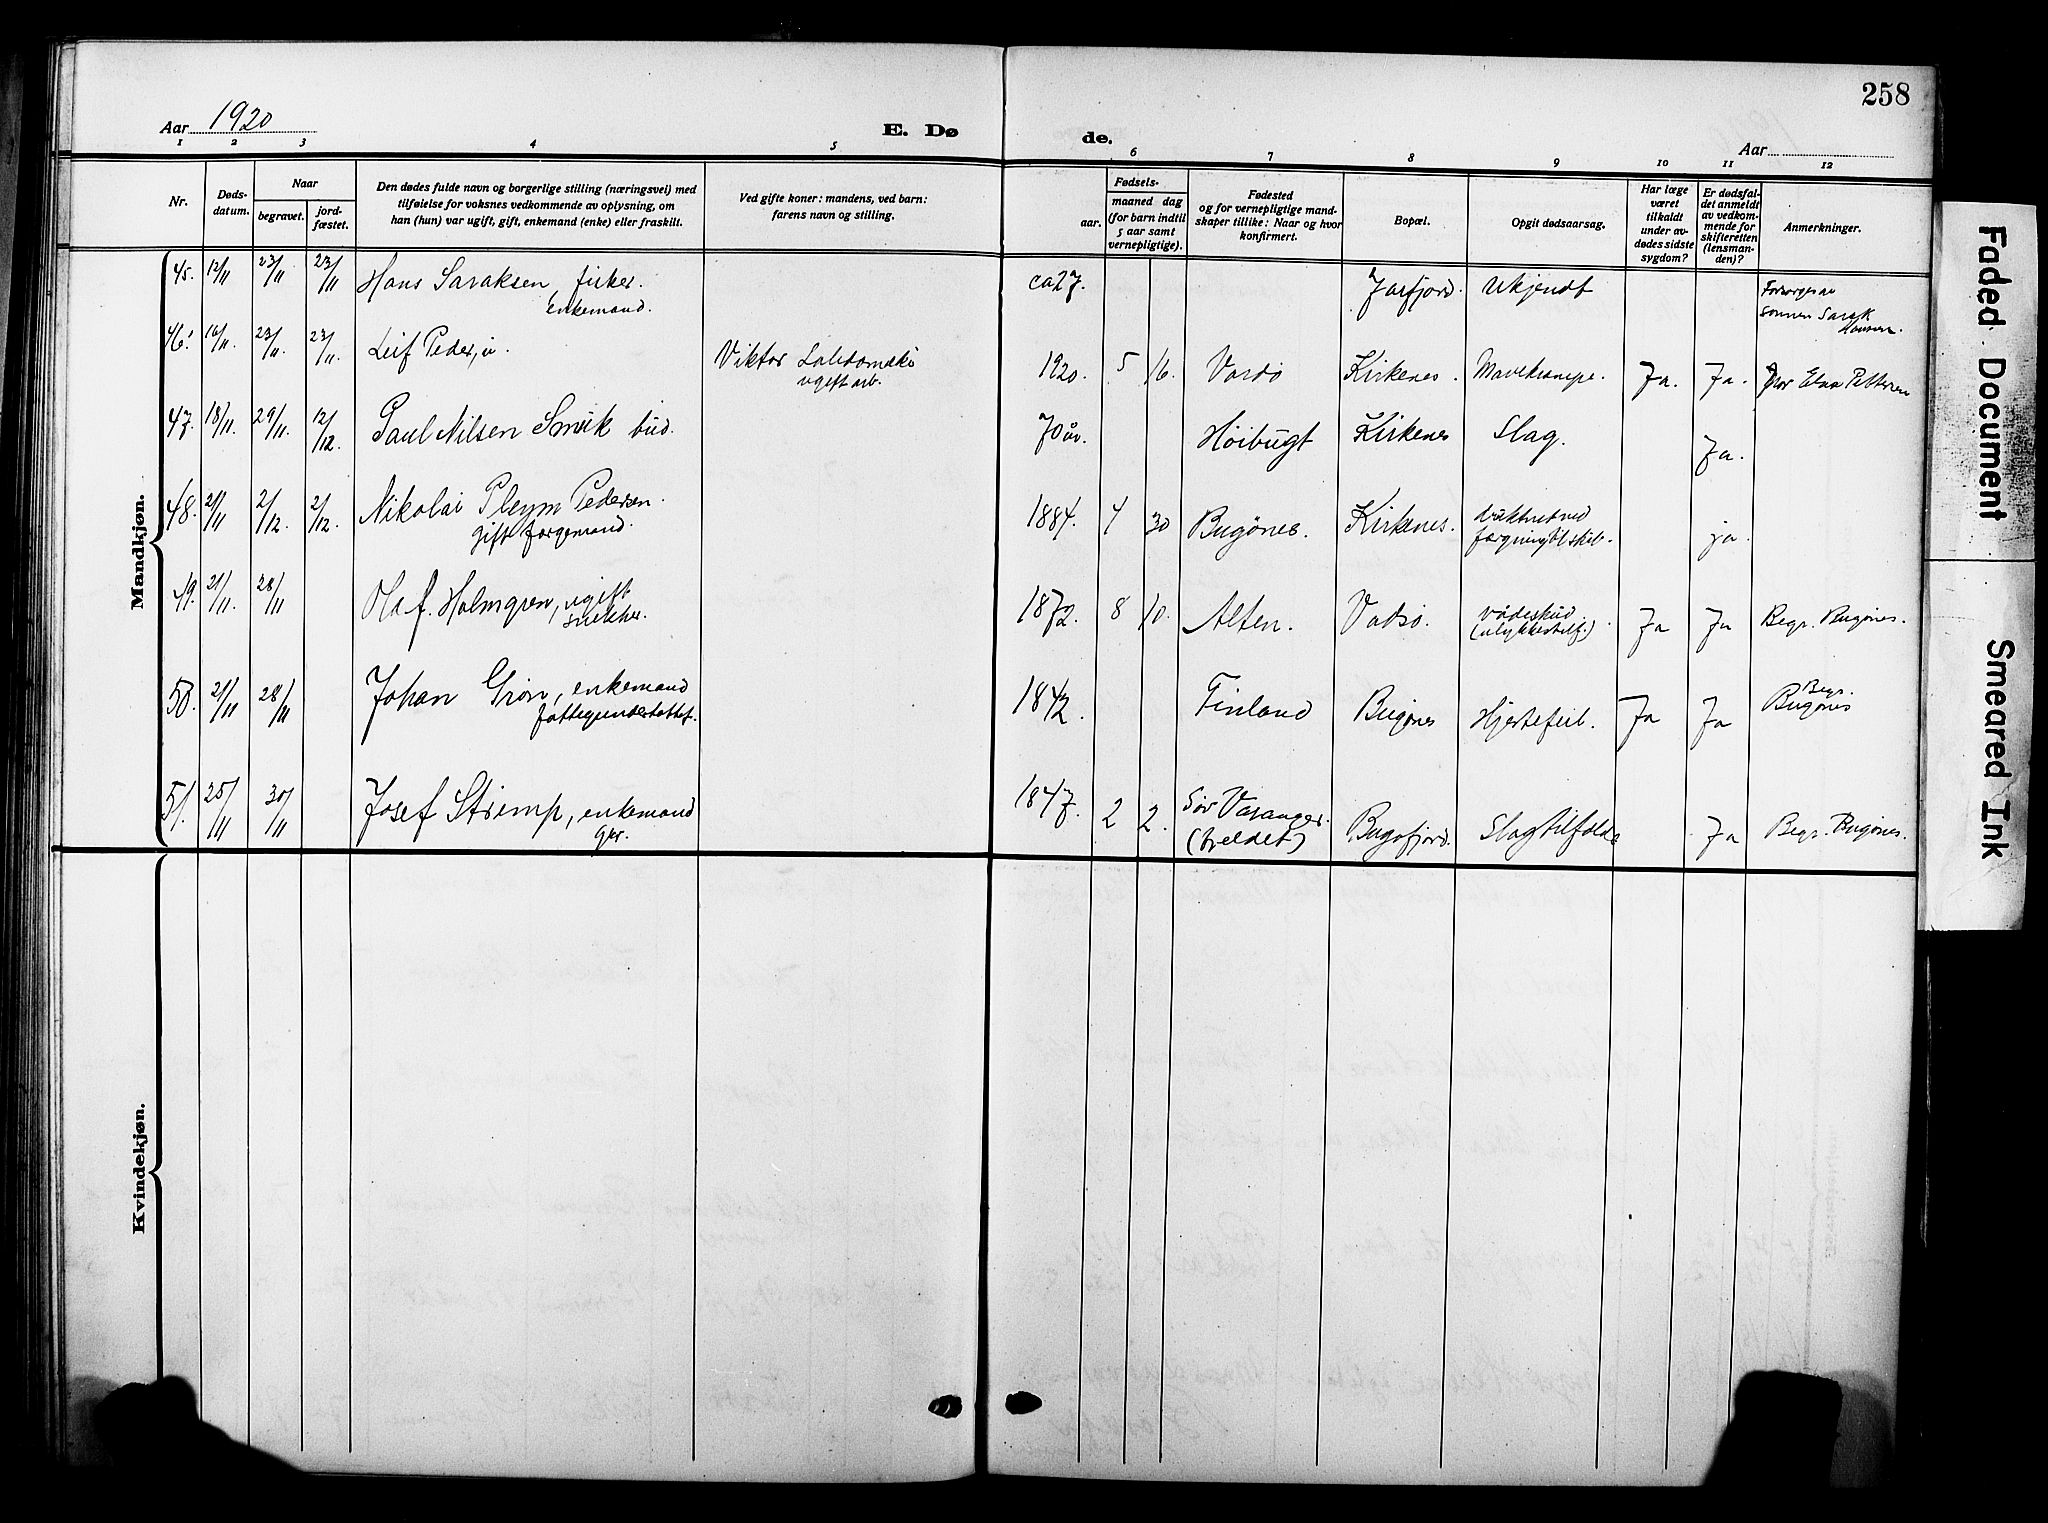 258
Aar 1920
E. Dø
de.
Aar
1 2 3 4 5 6 7 8 9 10 11 12
Nr.
Døds-
datum.
Naar
begravet.
jord-
fæstet.
Den dødes fulde navn og borgerlige stilling (næringsvei) med
tilføielse for voksnes vedkommende av oplysning, om
han (hun) var ugift, gift, enkemand (enke) eller fraskilt.
Ved gifte koner: mandens, ved barn:
farens navn og stilling.
Fødsels-
aar.
maaned dag
(for barn indtil
5 aar samt
vernepligtige).
Fødested
og for vernepligtige mand-
skaper tillike: Naar og hvor
konfirmert.
Bopæl.
Opgit dødsaarsag.
Har læge
været
tilkaldt
under av-
dødes sidste
sygdom?
Er dødsfal-
det anmeldt
av vedkom-
mende for
skifteretten
(lensman-
den)?
Anmerkninger.
Mandkjøn.
45. 12/11 23/11 23/11 Hans Saraksen, fisker. ca 27. Jarfjord. Ukjendt
enkemand.
sønnen Sarak
Hansen.
46. 23/11. 23/11. Leif Peder, u. Viktor 1920. 5 16. Vardø Kirkenes. Mavekrampe. Ja. Ja. Mor Elna Pettersen
ugift arb.
47. 18/11. 29/11. 12/12 Paul Nilsen Smuk bud. 70 år. Høibugt Kirkenes Slag. Ja.
48. 21/11 2/12. 2/12. Nikolai Pleym Pedersen. 1884. 4 30 Bugønes. Kirkenes. druknet ved ja.
gift forgemand.
49. 21/11. 28/11 Olaf. Holmgren, ugift 1872. 8 10. Alten. Vadsø. vådeskud Ja Ja Begr. Bugønes.
snekker. (ulykkestilf.)
50. 21/11 28/11 Johan Grøn, enkemand 1842. Finland Bugønes Hjertefeil. Ja Ja Begr.
Bugønes
fattigunderstøttet.
51. 25/11 30/11 Josef Strimp, enkemand 1847. 2 2. Sør Varanger. Bugøfjord. Slagtilfælde Ja Begr. Bugønes.
gbr.
Kvindekjøn.
Faded Document
Smeared Ink